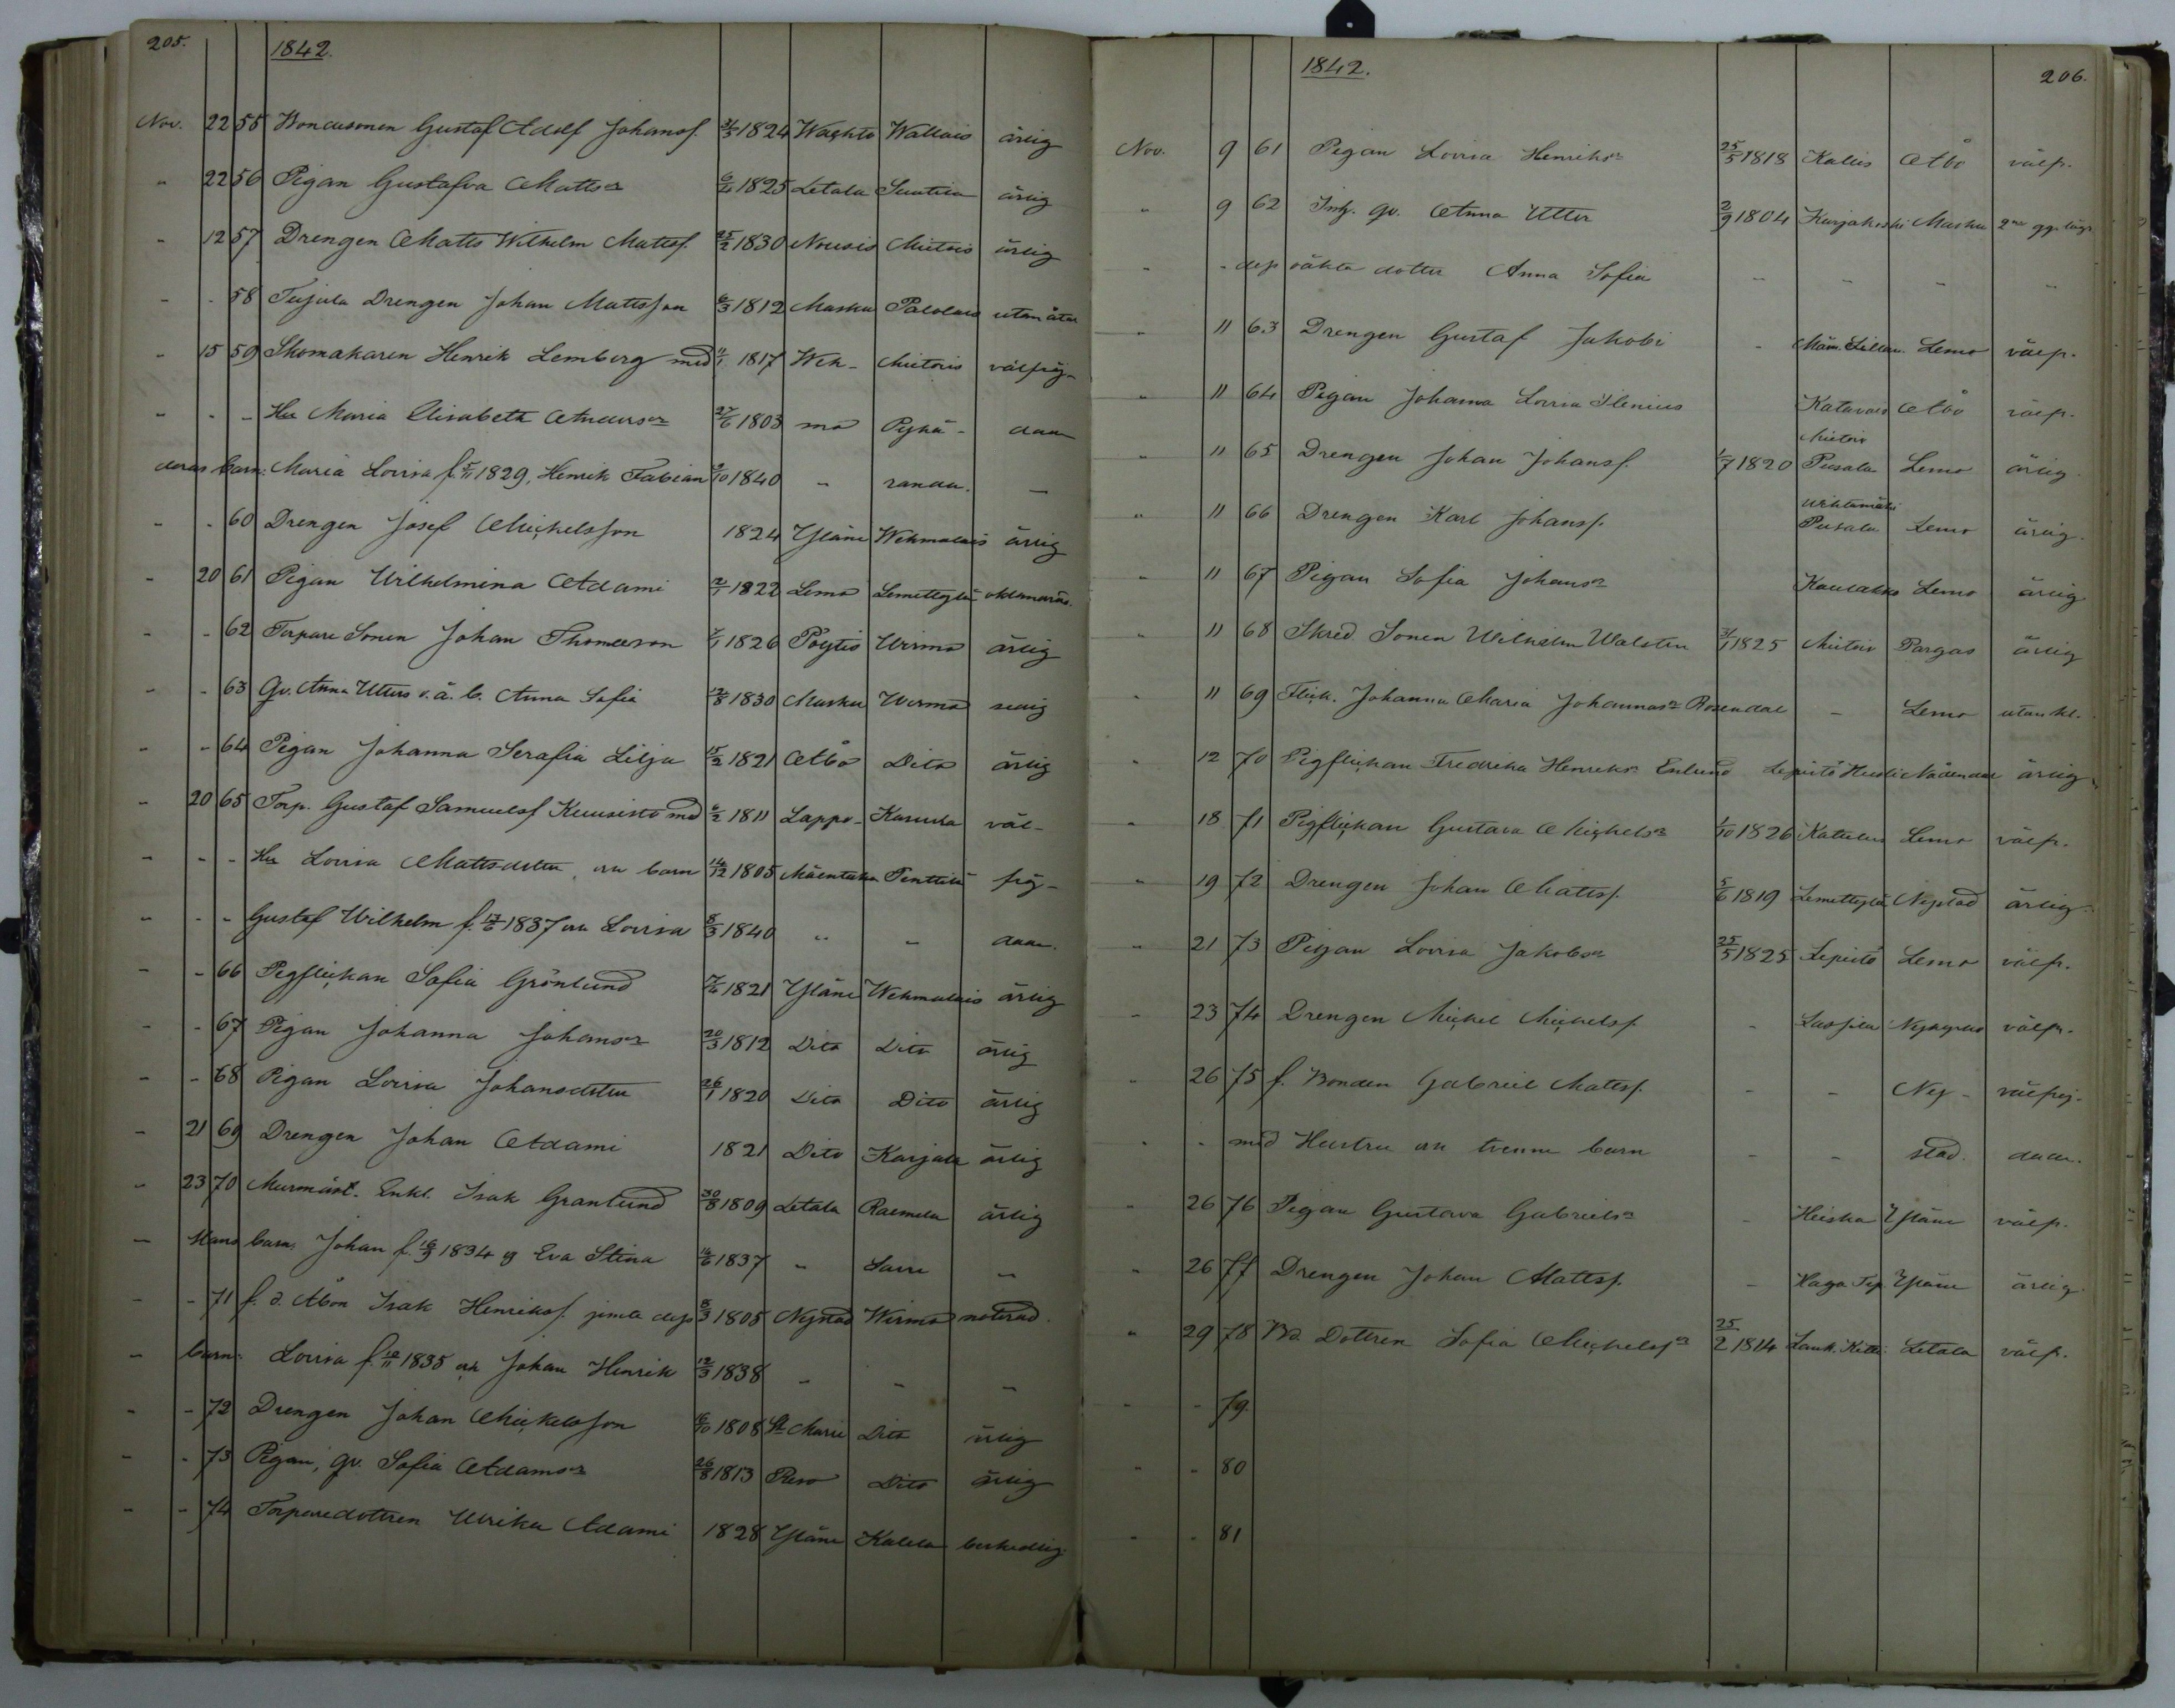 205.
1842.
Nov. 22 55 Bondesonen Gustaf Adolf Johansf. 31/3 1824 Wachto Wallais ärlig
" 22 56 Pigan Gustafva Mattsdr 1825 Letala ärlig
" 12 57 Drengen Matts Wilhelm Mattsf. 25/2 1830 Nousis Mietois ärlig
" " 58 Drengen Johan Mattsson 6/3 1812 Masku Palolais
" 15 59 Skomakaren Henrik Lemberg med 1817 Weh- Mietois välfrej-
" " - Hu Maria Elisabeth Andersdr 27/6 1803 mo Pyhä- daa
deras barn: Maria Lovisa f. 5/11 1829, Henrik Fabian 1840 " randa. -
" " 60 Drengen Josef Michelsson 1824 Yläne Wehmalais ärlig
" 20 61 Pigan Wilhelmina Adami 2/1 1822 Lemo Lemettylä
" " 62 Torpare Sonen Johan Thomeson 1826 Pöytis Wirmo ärlig
" " 63 Qv. Anna Utters o.ä. b. Anna Sofia 12/8 1830 Masku Wirmo
" " 64 Pigan Johanna Serafia Lilja 15/2 1821 Åbo Dito ärlig
" 20 65 Torp. Gustaf Samuelsf Kuusisto med 6/2 1811 Lappo- Karuna väl-
" " - Hu Lovisa Mattsdotter, barn 14/12 1805 Mäentaka Penttilä frej-
" " - Gustaf Wilhelm f. 13/6 1837 Lovisa 8/3 1840 " " daa.
" - 66 Pigflickan Sofia Grönlund 1821 Yläne Wehmalais ärlig
" - 67 Pigan Johanna Johansdr 20/3 1812 Dito Dito ärlig
" - 68 Pigan Lovisa Johansdotter 26/1 1820 Dito Dito ärlig
" 21 69 Drengen Johan Adami 1821 Dito Karjala ärlig
" 23 70 Murmäst. Enkl. Isak Granlund 30/8 1809 Letala Raemela ärlig
" Hans barn: Johan f. 16/9 1834 Eva Stina 1837 " "
" - 71 f. d. Åbon Isak Henriksf. jemte dess 8/3 1805 Nystad Wirmo noterad.
" barn: Lovisa f. 1835 Johan Henrik 12/3 1838 " " "
" - 72 Drengen Johan Mickelsson 1808 St Marie Dito ärlig
" - 73 Pigan, qv. Sofia Adamsdr 26/8 1813 Reso Dito ärlig
" - 74 Torparedottren Ulrika Adami 1828 Yläne Kalela beskedlig
1842.
206.
Nov. 9 61 Pigan Lovisa Henriksdr 25/5 1818 Kallis Åbo välfr.
" 9 62 Inh. qv. Anna Utter 2/9 1804 Kurjakoski Masku
" " dess oäkta dotter Anna Sofia " " " "
" 11 63 Drengen Gustaf Jakobi - Lemo välfr.
" 11 64 Pigan Johanna Lovisa Ilenius Katavais Åbo välfr.
Mietois
" 11 65 Drengen Johan Johansf. 1/7 1820 Pusala Lemo ärlig
" 11 66 Drengen Karl Johansf. Pusala Lemo ärlig.
" 11 67 Pigan Sofia Johansdr Lemo ärlig
" 11 68 Skred. Sonen Wilhelm Walsten 31/1 1825 Mietois Pargas ärlig
" 11 69 Flick. Johanna Maria Johannasdr Rosendal - Lemo utan kl.
" 12 70 Pigflickan Fredrika Henriksdr Enlund Lepistö Nådendal ärlig
" 18 71 Pigflickan Gustava Michelsdr 1/10 1826 Lemo välfr.
" 19 72 Drengen Johan Mattsf. 5/6 1819 Lemettylä Nystad ärlig.
" 21 73 Pigan Lovisa Jakobsdr 25/5 1825 Lepistö Lemo välfr.
" 23 74 Drengen Mickel Mickelsf. - Lassila Nykyrko välfr.
" 26 75 f. Bonden Gabriel Mattsf. - - Ny- välfrej-
" " med Hustru tvenne barn - - stad. daa.
" 26 76 Pigan Gustava Gabrielsdr - Heiska Yläne välfr.
" 26 77 Drengen Johan Mattsf. - Haga Yläne ärlig.
" 29 78 Bd. Dottren Sofia Mickelsdr 25/2 1814 Letala välfr.
" " 79.
" " 80
" " 81